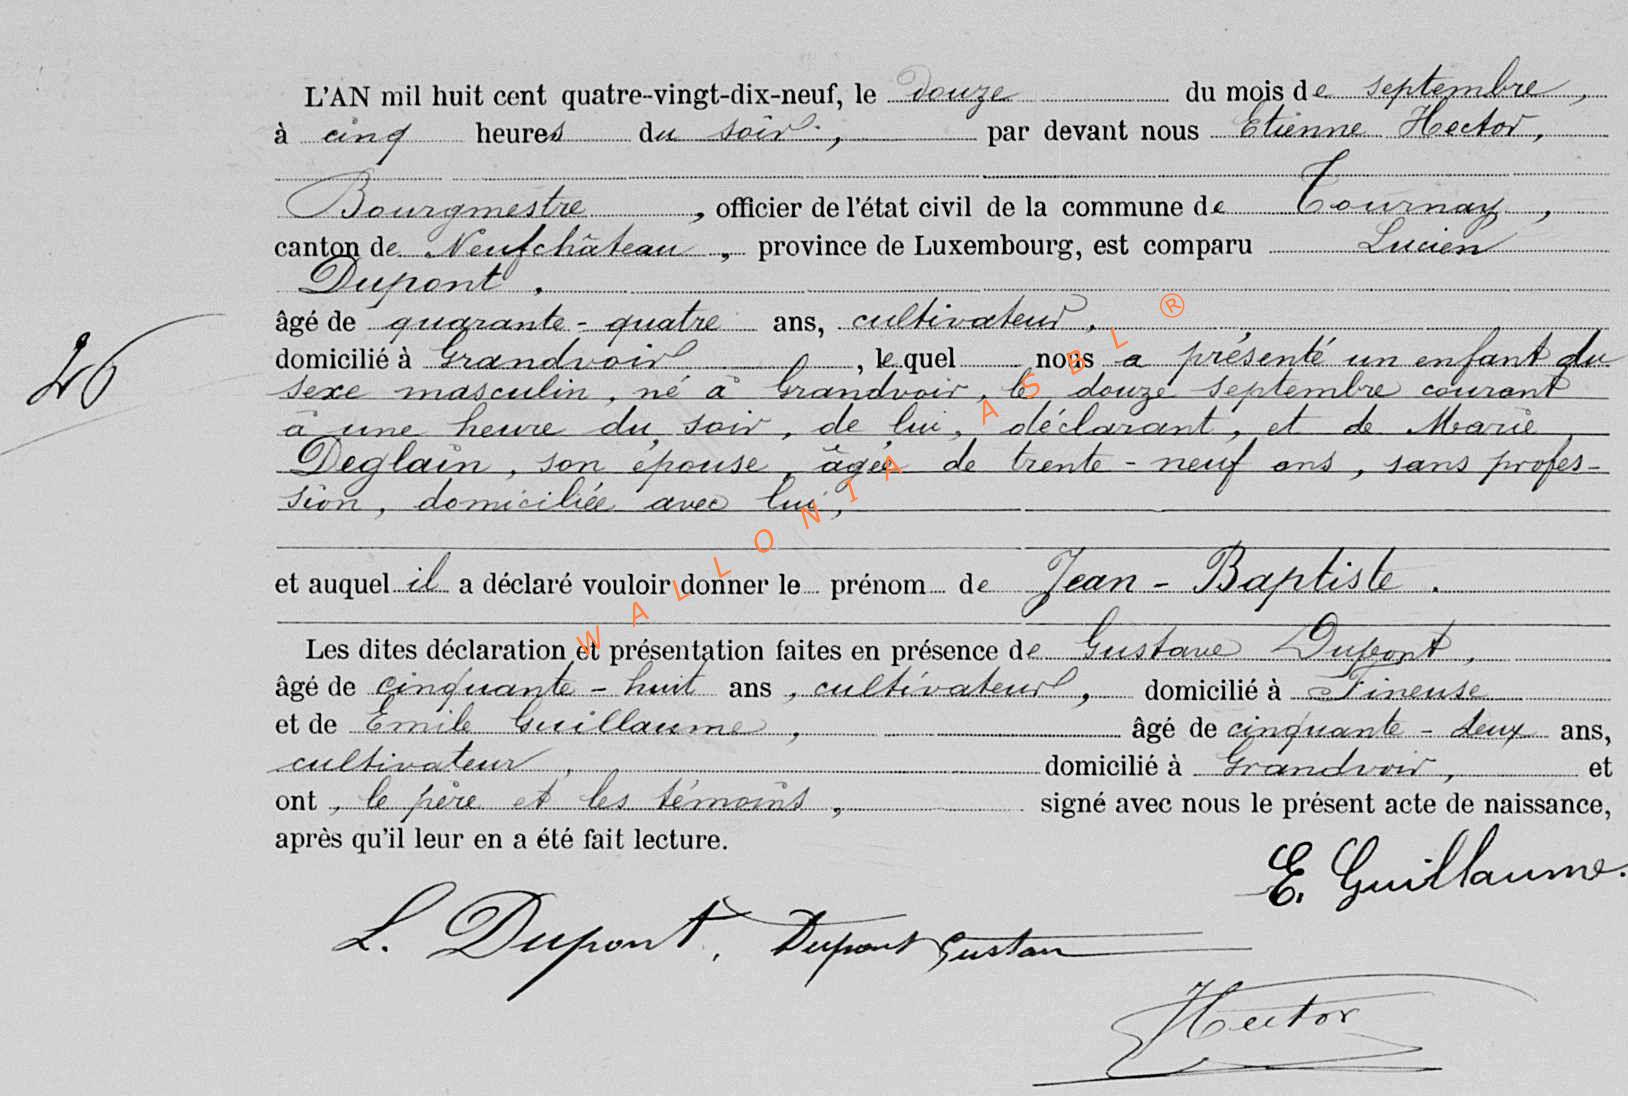 L'AN mil huit cent quatre-vingt-dix-neuf, le douze du mois de septembre,
à cinq heures du soir, par devant nous Etienne Hector,
Bourgmestre, officier de l'état civil de la commune de Tournay,
canton de Neufchâteau, province de Luxembourg, est comparu Lucien
Dupont,
âgé de quarante-quatre ans, cultivateur,
domicilié à Grandvoir, lequel nous a présenté un enfant du
sexe masculin, né à Grandvoir, le douze septembre courant
à une heure du soir, de lui, déclarant, et de Marie
Deglain, son épouse, âgée de trente-neuf ans, sans profes-
sion, domiciliée avec lui,
et auquel il a déclaré vouloir donner le prénom de Jean-Baptiste.
Les dites déclaration et présentation faites en présence de Gustave Dupont,
46
âgé de cinquante-huit ans, cultivateur, domicilié à Tineuse
et de Emile Guillaume, âgé de cinquante-deux ans,
cultivateur, domicilié à Grandvoir, et
ont, le père et les témoins, signé avec nous le présent acte de naissance,
après qu'il leur en a été fait lecture.
E. Guillaume.
L. Dupont. Dupont Gustave
Hector
WALLONIA ASBL ®